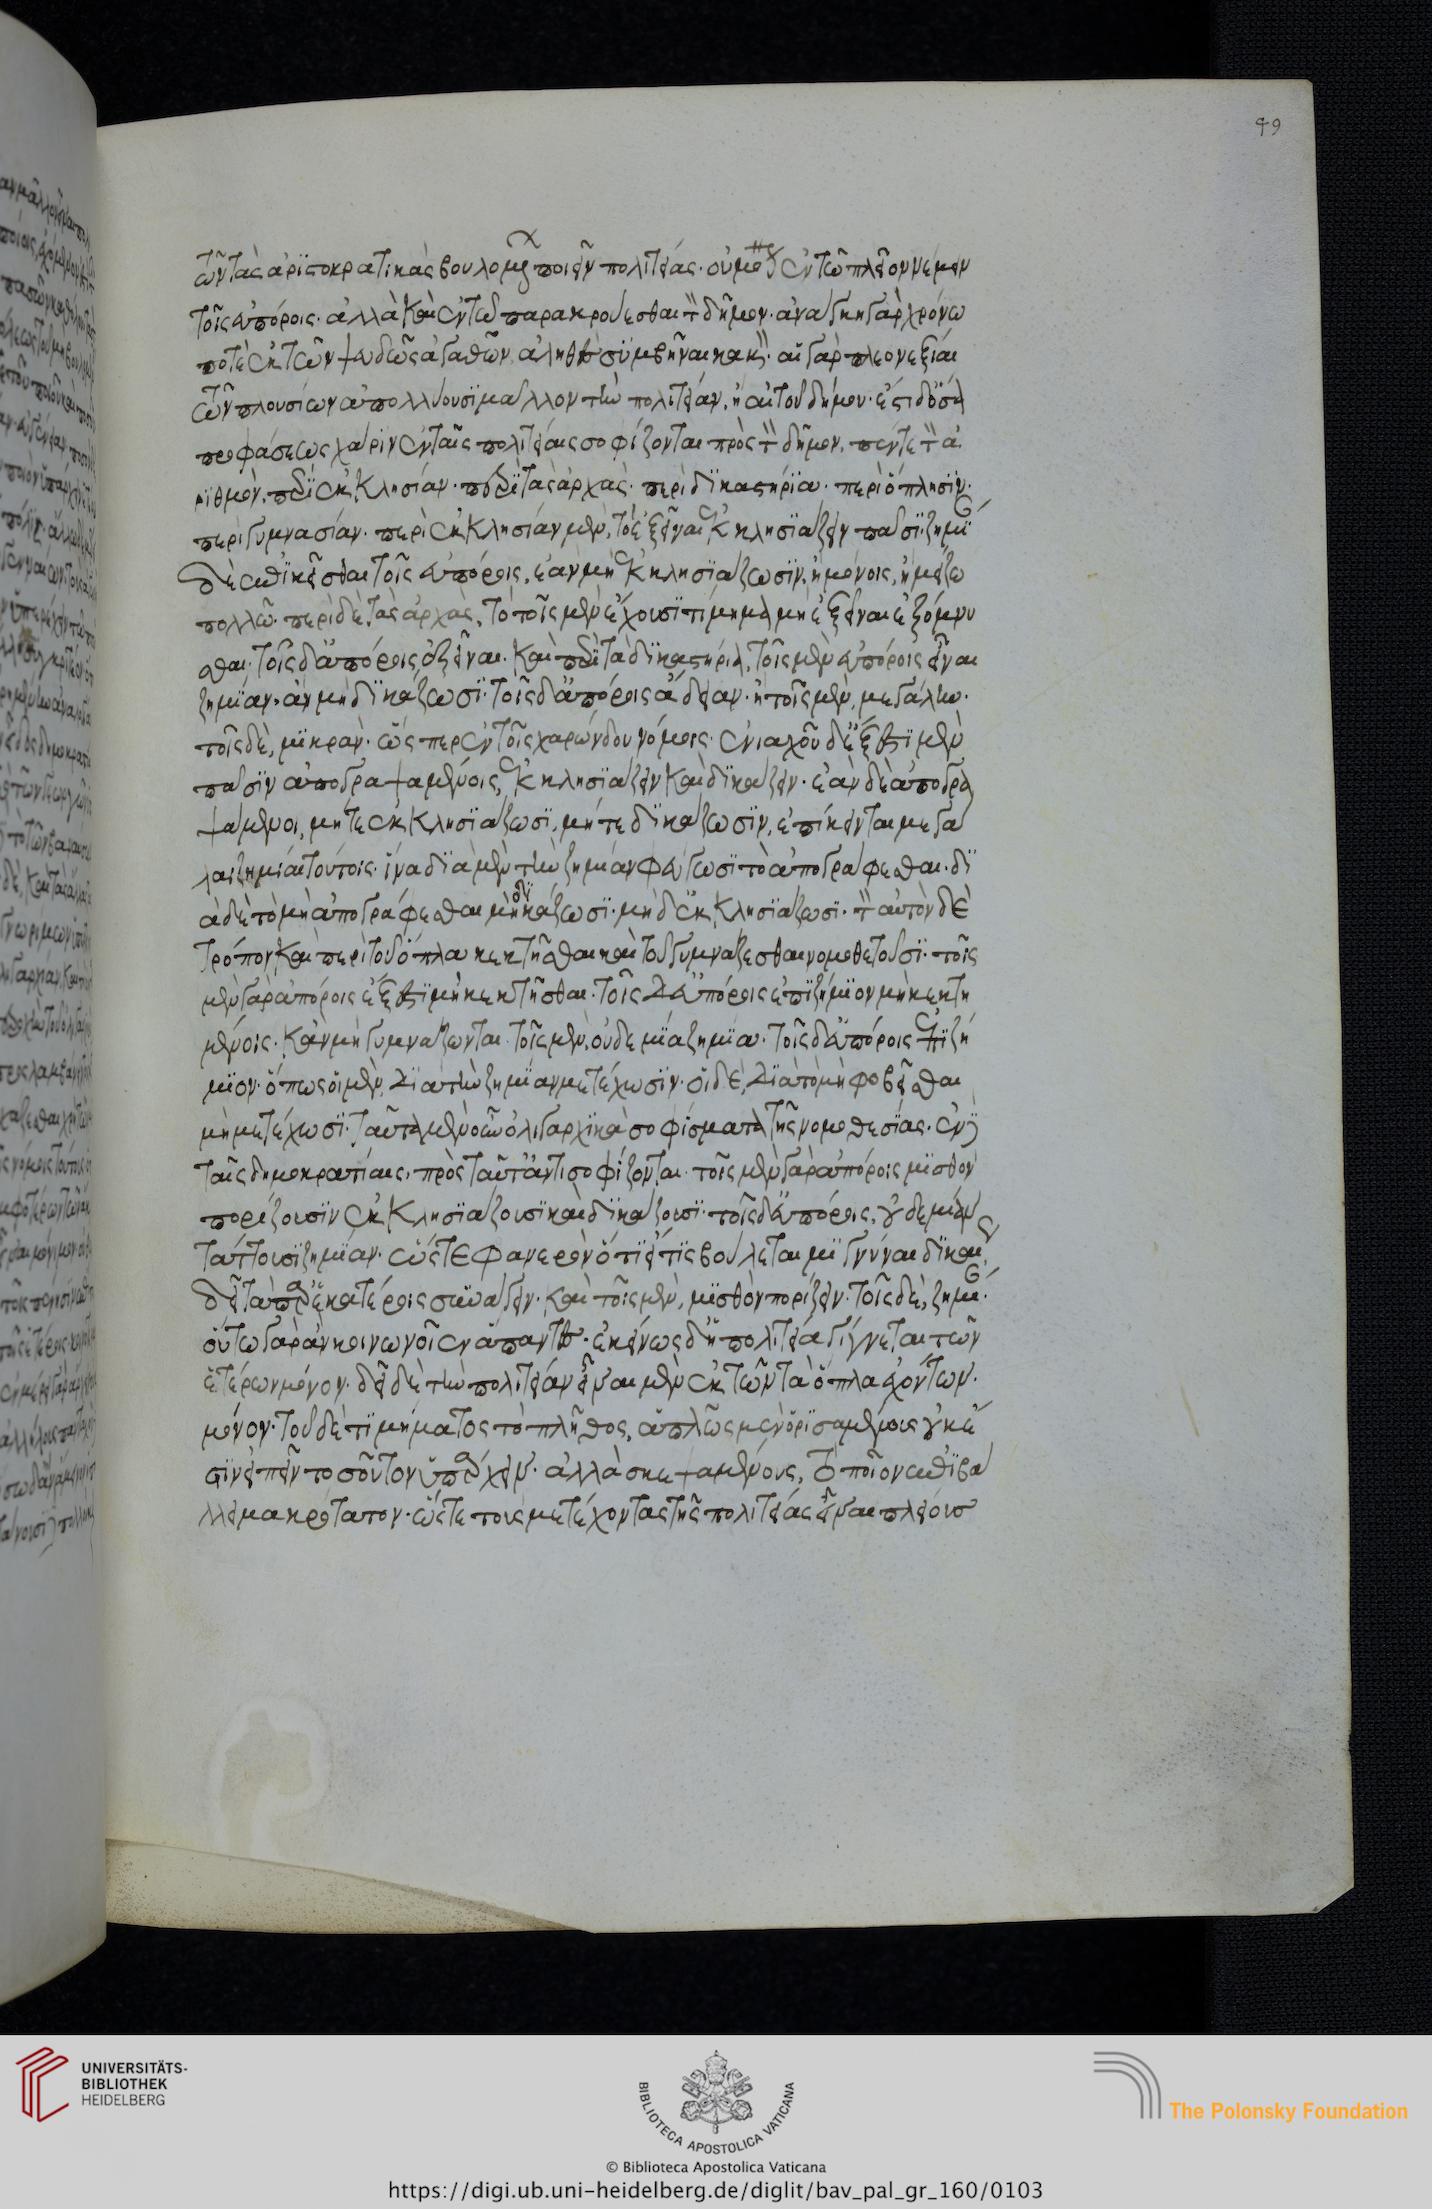 49
τῶν τὰς ἀριστοκρατικὰς βουλομένων ποιεῖν πολιτείας. οὐ μόνον ἐν τῶ πλεῖον νέμειν
τοῖς εὐπόροις. ἀλλὰ καὶ ἐν τῶ παρακρούεσθαι τὸν δῆμον. ἀνάγκη γὰρ χρόνω
ποτὲ ἐκ τῶν ψευδῶς ἀγαθῶν, ἀληθὲς συμβῆναι κακόν. αἱ γὰρ πλεονεξίαι
τῶν πλουσίων ἀπολλύουσι μᾶλλον τὴν πολιτείαν, ἢ αἱ τοῦ δήμου. ἔστι δ' ὅσα
προφάσεως χάριν ἐν ταῖς πολιτείαις σοφίζονται πρὸς τὸν δῆμον, πέντε τὸν ἀ
ριθμόν, περὶ ἐκκλησίαν. περὶ τὰς ἀρχάς. περὶ δικαστήρια. περὶ ὅπλησιν.
περὶ γυμνασίαν. περὶ ἐκκλησίαν μὲν, τὸ ἐξεῖναι ἐκκλησιάζειν πᾶσι. ζημίαν
δὲ ἐπικεῖσθαι τοῖς εὐπόροις, ἐὰν μὴ ἐκκλησιάζωσιν, ἢ μόνοις, ἢ μείζω
πολλῶ. περὶ δὲ τὰς ἀρχὰς, τὸ τοῖς μὲν ἔχουσι τίμημα μὴ ἐξεῖναι ἐξόμνυ
σθαι. τοῖς δ' ἀπόροις ἐξεῖναι. καὶ περὶ τὰ δικαστήρια, τοῖς μὲν εὐπόροις εἶναι
ζημίαν, ἂν μὴ δικάζωσι. τοῖς δ' ἀπόροις ἄδειαν. ἢ τοῖς μὲν, μεγάλην.
τοῖς δὲ, μικράν. ὥσπερ ἐν τοῖς χαρώνδου νόμοις. ἐνιαχοῦ δ' ἔξεστι μὲν
πᾶσιν ἀπογραψαμένοις, ἐκκλησιάζειν καὶ δικάζειν. ἐὰν δὲ ἀπογρα
ψάμενοι, μήτε ἐκκλησιάζωσι, μήτε δικάζωσιν, ἐπίκεινται μεγά
λαι ζημίαι τούτοις. ἵνα διὰ μὲν τὴν ζημίαν φεύγωσι τὸ ἀπογράφεσθαι. δι
ὰ δὲ τὸ μὴ ἀπογράφεσθαι μὴ δικάζωσι. μηδ' ἐκκλησιάζωσι. τὸν αὐτὸν δὲ
τρόπον καὶ περὶ τοῦ ὅπλα κεκτῆσθαι καὶ τοῦ γυμνάζεσθαι νομοθετοῦσι. τοῖς
μὲν γὰρ ἀπόροις ἔξεστι μὴ κεκτῆσθαι. τοῖς δ' εὐπόροις ἐπιζήμιον μὴ κεκτη
μένοις. κἂν μὴ γυμνάζωνται. τοῖς μὲν, οὐδεμία ζημία. τοῖς δ' εὐπόροις ἐπιζή
μιον. ὅπως οἱ μὲν, διὰ τὴν ζημίαν μετέχωσιν. οἱ δὲ, διὰ τὸ μὴ φοβεῖσθαι
μὴ μετέχωσι. ταῦτα μὲν οὖν ὀλιγαρχικὰ σοφίσματα τῆς νομοθεσίας. ἐν δὲ
ταῖς δημοκρατίαις, πρὸς ταῦτ' ἀντισοφίζονται. τοῖς μὲν γὰρ ἀπόροις μισθὸν
πορίζουσιν ἐκκλησιάζουσι καὶ δικάζουσι. τοῖς δ' εὐπόροις, οὐδεμίαν
τάττουσι ζημίαν. ὥστε φανερὸν ὅτι εἴ τις βούλεται μιγνύναι δικαίως
δεῖ τὰ παρ' ἑκατέροις συνάγειν. καὶ τοῖς μὲν, μισθὸν πορίζειν. τοῖς δὲ, ζημίαν.
οὕτω γὰρ ἂν κοινωνοῖεν ἅπαντες. ἐκείνως δ' ἡ πολιτεία γίγνεται τῶν
ἑτέρων μόνον. δεῖ δὲ τὴν πολιτείαν εἶναι μὲν ἐκ τῶν τὰ ὅπλα ἐχόντων.
μόνον. τοῦ δὲ τιμήματος τὸ πλῆθος, ἁπλῶς μὲν ὁρισαμένους οὐκ ἔ
στιν εἰπεῖν τοσοῦτον ὑπάρχειν. ἀλλὰ σκεψαμένους, τὸ ποῖον ἐπιβά
λλει μακρότατον. ὥστε τοὺς μετέχοντας τῆς πολιτείας εἶναι πλείους
UNIVERSITÄTS-
BIBLIOTHEK
HEIDELBERG
BIBLIOTECA APOSTOLICA VATICANA
The Polonsky Foundation
© Biblioteca Apostolica Vaticana
https://digi.ub.uni-heidelberg.de/diglit/bav_pal_gr_160/0103